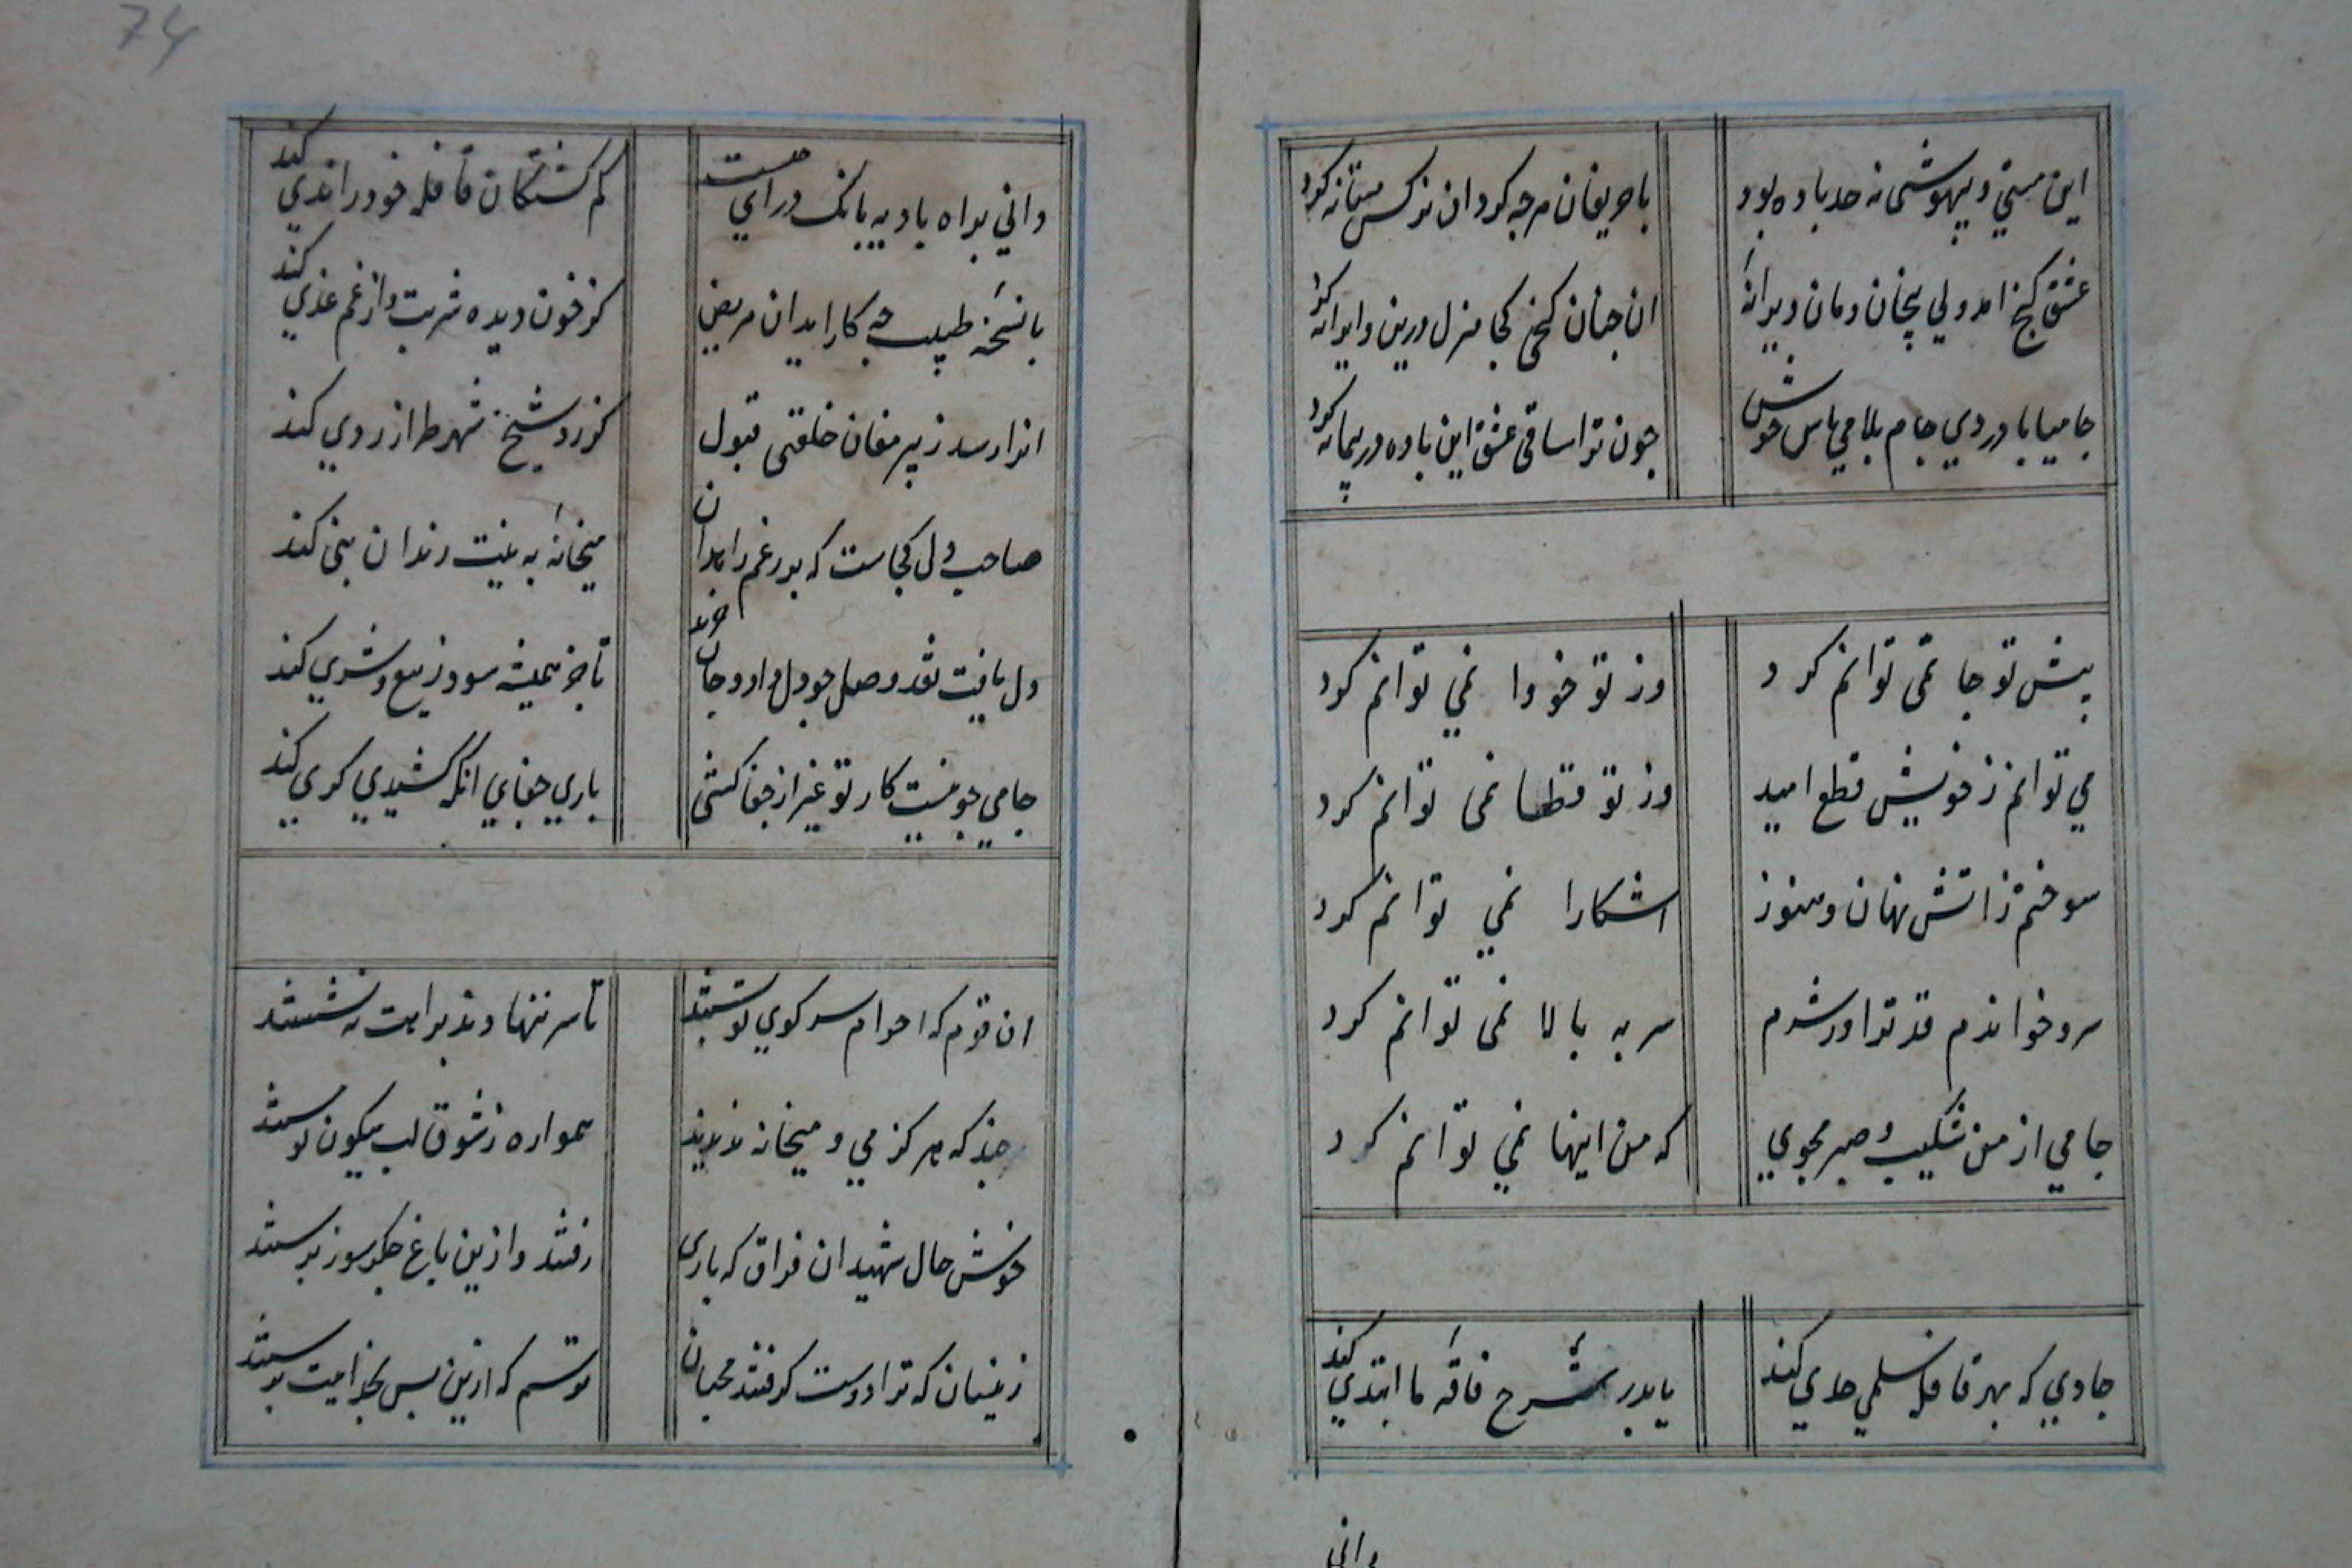 این مستی و بیهوشی نه حد باده بود
با حریفان هرچه کرد ان نرکس مستانه کرد
عشق کنج امد ولی بیجان ومان ویرانهٔ
ان جنان کنجی کجا منزل درین ویرانه کرد
جامیا با دردی جام بلا می باش خوش
جون ترا ساقی عشق این باده در پیمانه کرد
پیش تو جا نمی توانم کرد
وز تو خو وا نمی توانم کرد
می توانم ز خویش قطع امید
وز تو قطعا نمی توانم کرد
سوختم ز اتش نهان و هنوز
اشکارا نمی توانم کرد
سرو خواندم قد ترا و ز شرم
سر به بالا نمی توانم کرد
جامی از من شکیب و صبر مجوی
که من اینها نمی توانم کرد
حادی که بهر قافلهٔ سلمی حدی کند
باید بر شرح فاقهٔ ما ابتدی کند
دانی
74
دانی براه بادیه بانک درای چیست
کم کشتکان قافله خود را ندی کند
با نسخهٔ طبیب چه کار ایدان مریض
کز خون دیده شربت و از غم غذی کند
انرا رسد ز پیر مغان خلقتی قبول
کز زد شیخ شهر طراز ردی کند
صاحب دل کجاست که بر رغم زاهدان
میخانهٔ به نیت رندان بنی کند
دل یافت نقد وصل جو دل داد و جان خرید
تاجر همیشه سود ز بیع و شری کند
جامی جو نیست کار تو غیر از جفا کشی
باری جفای انکه کشیدی کری کند
ان قوم که احرام سر کوی تو بستند
تا سر ننهادند براهت نه نشستند
هر چند که هرکز می و میخانه ندیدند
همواره ز شوق لب میکون تو مستند
خوش حال شهیدان فراق که باری
رفتند و ازین باغ جکر سوز برستند
زینسان که ترا دوست کرفتند محبان
ترسم که ازین بس بخدایت بپرستند